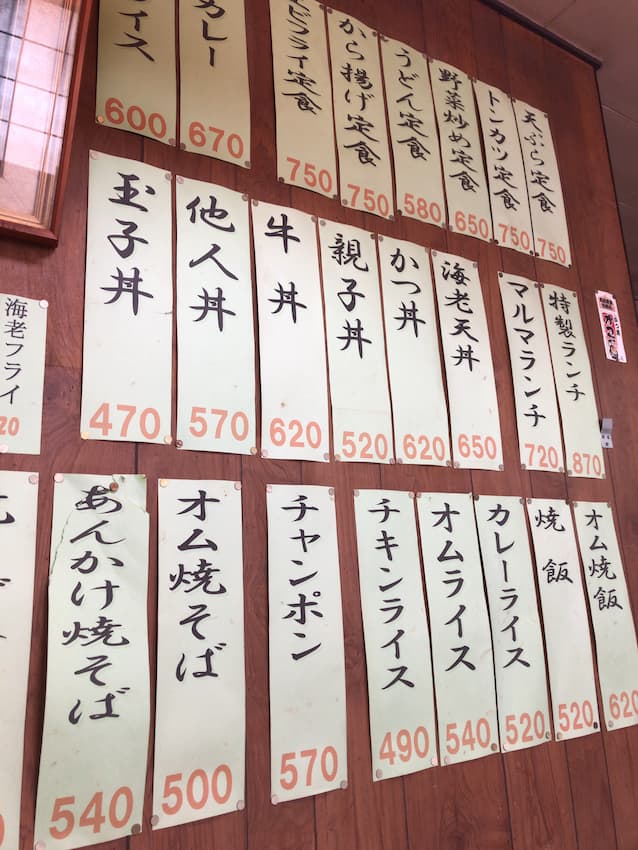 天ぷら定食 750
トンカツ定食 750
野菜炒め定食 650
うどん定食 580
から揚げ定食 750
ビフライ定食 750
カレー 670
イス 600
特製ランチ 870
マルマランチ 720
海老天丼 650
かつ丼 620
親子丼 520
牛丼 620
他人丼 570
玉子丼 470
海老フライ 20
オム焼飯 620
焼飯 520
カレーライス 520
オムライス 540
チキンライス 490
チャンポン 570
オム焼そば 500
あんかけ焼そば 540